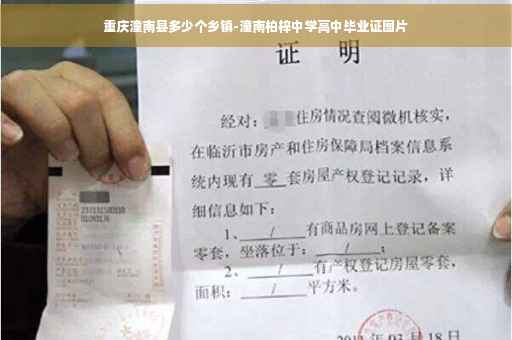 重庆潼南县多少个乡镇-潼南柏梓中学高中毕业证图片
证 明
经对：住房情况查阅微机核实，
在临沂市房产和住房保障局档案信息系
统内现有 零 套房屋产权登记记录，详
细信息如下：
1、 / 有商品房网上登记备案
零套，坐落位于： / ；
2、 / 有产权登记房屋零套，
面积： / 平方米。
月18日